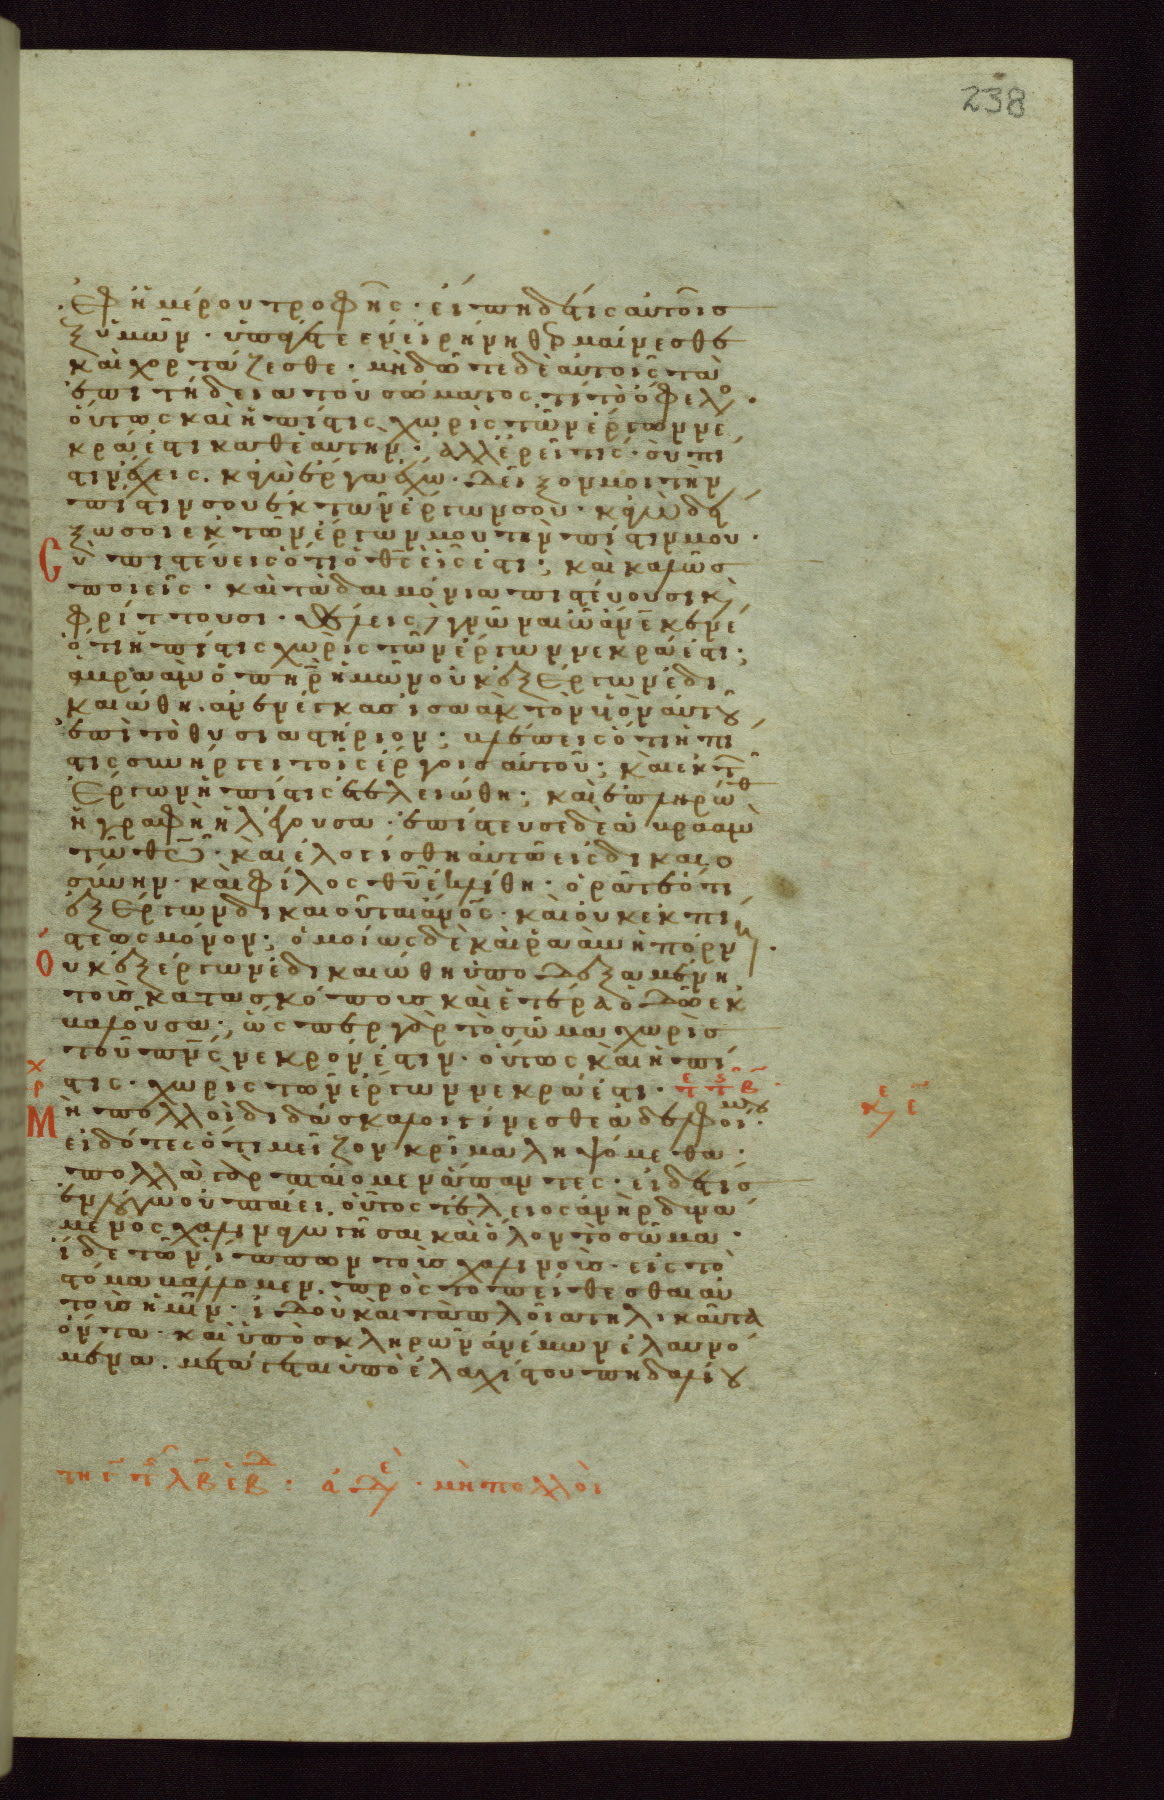 238
ἐφημέρου τροφῆς· εἴπη δέ τις αὐτοῖσ
ἐξ ὑμῶν· ὑπάγετε ἐν εἰρήνη θερμαίνεσθε
καὶ χορτάζεσθε· μὴ δῶτε δὲ αὐτοῖς τὰ
ἐπιτήδεια τοῦ σώματος τί τὸ ὄφελο·
οὕτως καὶ ἡ πίστις χωρὶς τῶν ἔργων νε
κρά ἐστι καθ ἑαυτήν· ἀλλ ἐρεῖ τις· σὺ πί
στιν ἔχεις· κἀγὼ ἔργα ἔχω· δεῖξον μοι τὴν
πίστιν σου ἐκ τῶν ἔργων σου· κἀγὼ δεί
ξω σοι ἐκ τῶν ἔργων μου τὴν πίστιν μου·
Σὺ πιστεύεις ὅτι ὁ θς εἷς ἐστι; καὶ καλῶσ
ποιεῖς· καὶ τὰ δαιμόνια πιστεύουσι κ
φρίττουσι· θέλεις γνῶναι ὦ ἄνε κενέ
ὅτι ἡ πίστις χωρὶς τῶν ἔργων νεκρά ἐστι;
ἀβραὰμ ὁ πηρ ἡμῶν οὐκ ἐξ ἔργων ἐδι
καιώθη· ἀνενέγκας ἰσαὰκ τὸν υἱὸν αὐτοῦ
ἐπὶ τὸ θυσιαστήριον; βλέπεις ὅτι ἡ πί
στις συνήργει τοῖς ἔργοισ αὐτοῦ; καὶ ἐκ τῶν
ἔργων ἡ πίστις ἐτελειώθη; καὶ ἐπληρώθ
ἡ γραφὴ ἡ λέγουσα· ἐπίστευσε δὲ ἀβραὰμ
τῶ θῶ· καὶ ἐλογίσθη αὐτῶ εἰς δικαιο
σύνην· καὶ φίλος θυ ἐκλήθη· ὁρᾶτε ὅτι
ἐξ ἔργων δικαιοῦται ἄνος· καὶ οὐκ ἐκ πί
στεως μόνον; ὁμοίως δὲ καὶ ῥαὰβ ἡ πόρνη·
Οὐκ ἐξ ἔργων ἐδικαιώθη ὑποδεξαμένη
τοὺσ κατασκόπουσ καὶ ἑτέρα ὁδῶ ἐκ
βαλοῦσα; ὡς περ γὰρ τὸ σῶμα χωρὶσ
τοῦ πνς νεκρόν ἐστιν· οὕτως καὶ ἡ πί
στις· χωρὶς τῶν ἔργων νεκρά ἐστι·
Μὴ πολλοὶ διδάσκαλοι γίνεσθε ἀδελφοί μου·
εἰδότες ὅτι μεῖζον κρίμα ληψόμεθα·
πολλὰ γὰρ πταίομεν ἅπαντες· εἴ τισ
ἐν λόγω οὐ πταίει· οὗτος τέλειος ἀνὴρ δυνά
μενος χαλιναγωγῆσαι καὶ ὅλον τὸ σῶμα·
ἴδε τῶν ἵππων τοὺσ χαλινοὺσ· εἰς τὸ
στόμα βάλλομεν· πρὸς τὸ πείθεσθαι αὐ
τοὺσ ἡμῖν· ἰδοὺ καὶ τὰ πλοῖα τηλικαῦτα
ὄντα· καὶ ὑπὸ σκληρῶν ἀνέμων ἐλαυνό
μενα· μετάγεται ὑπὸ ἐλαχίστου πηδαλίου
ἀδε· μὴ πολλοὶ